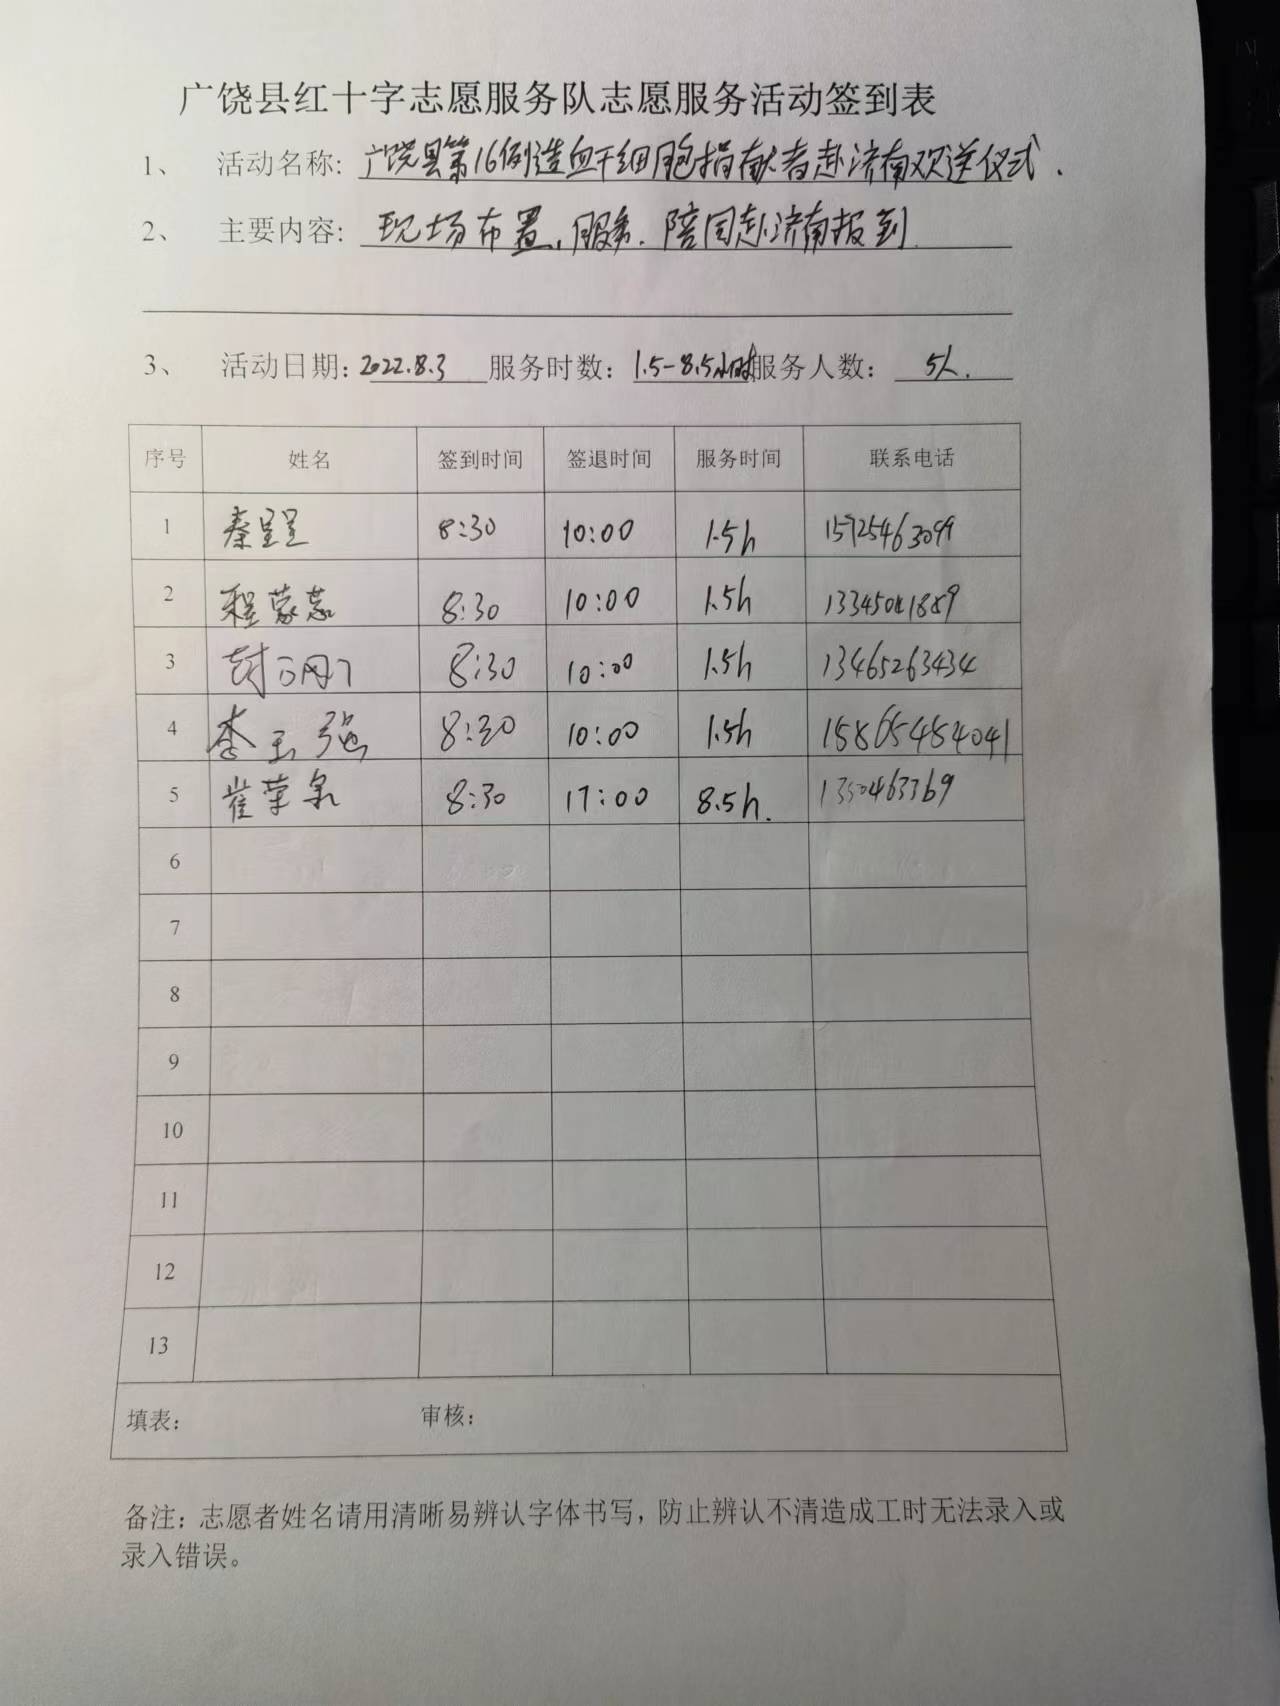 广饶县红十字志愿服务队志愿服务活动签到表
1、 活动名称: 广饶县第16例造血干细胞捐献者赴济南欢送仪式.
2、 主要内容: 现场布置、服务. 陪同赴济南报到.
3、 活动日期: 2022.8.3 服务时数: 1.5-8.5小时 服务人数: 5人.
序号 姓名 签到时间 签退时间 服务时间 联系电话
1 秦呈呈 8:30 10:00 1.5h
2 程蒙蒙 8:30 10:00 1.5h
3 8:30 10:00 1.5h 13465263434
4 李玉强 8:30 10:00 1.5h 15865484041
5 崔荣泉 8:30 17:00 8.5h.
6
7
8
9
10
11
12
13
填表: 审核:
备注: 志愿者姓名请用清晰易辨认字体书写，防止辨认不清造成工时无法录入或
录入错误。